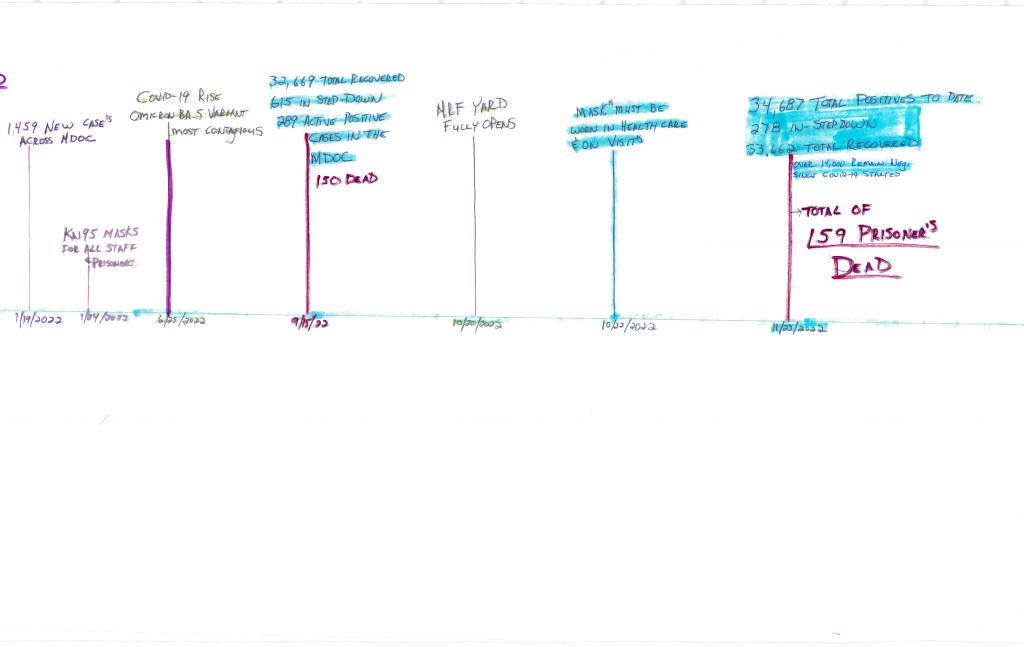 1,459 NEW CASE'S
ACROSS MDOC
KN95 MASKS
FOR ALL STAFF
& PRISONERS
COVID-19 RISE
OMICRON BA.5 VARIANT
MOST CONTAGIOUS
32,669 TOTAL RECOVERED
615 IN STEP-DOWN
289 ACTIVE POSITIVE
CASES IN THE
MDOC
150 DEAD
MRF YARD
FULLY OPENS
MASK'S MUST BE
WORN IN HEALTH CARE
& ON VISIT'S
34,687 TOTAL POSITIVES TO DATE
278 IN-STEPDOWN
33,662 TOTAL RECOVERED
OVER 14,000 REMAIN NEG.
SINCE COVID-19 STARTED
TOTAL OF
159 PRISONER'S
DEAD
1/19/2022
1/24/2022
6/25/2022
9/15/22
10/20/2022
10/22/2022
11/23/2022